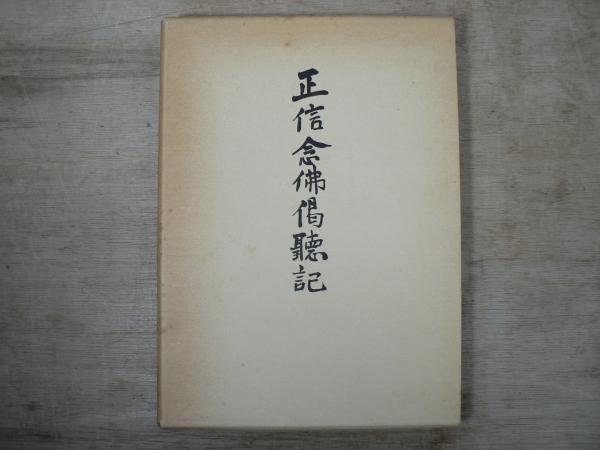 正信念佛偈聽記